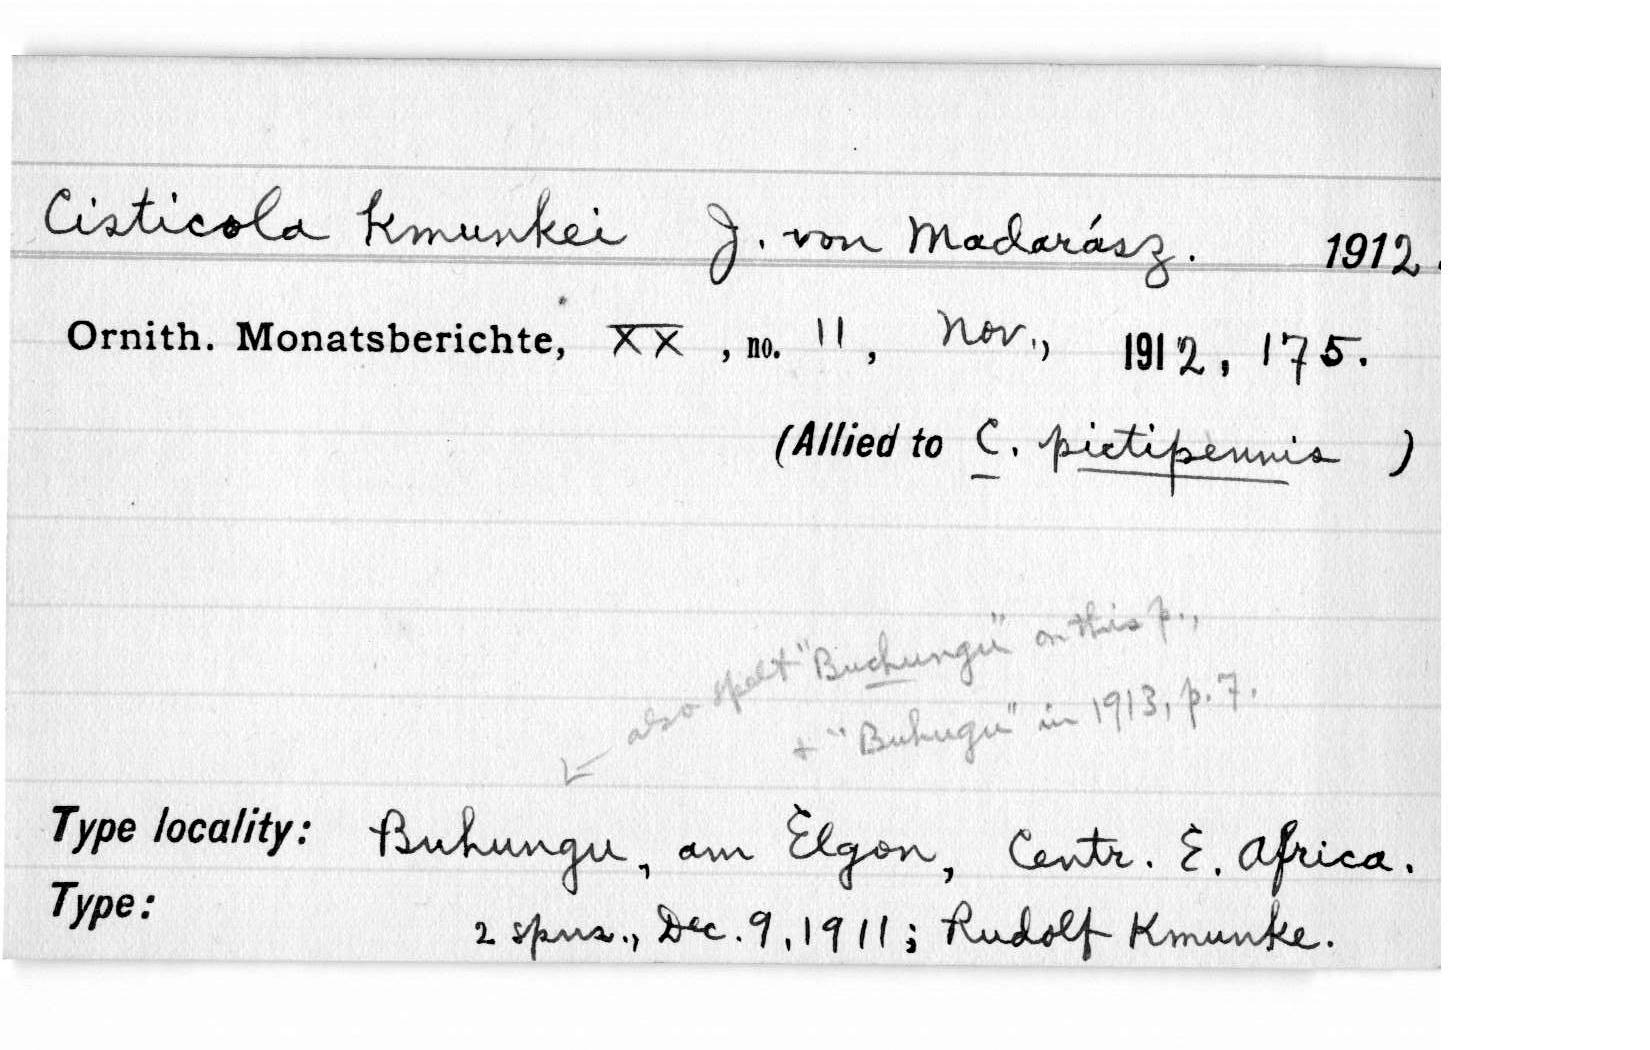 Cisticola kmunkei J. von Madarász. 1912.
Ornith. Monatsberichte, XX, no. 11, Nov., 1912, 175.
(Allied to C. pictipennis )
also spelt "Buchungu" on this p.,
+ "Buhugu" in 1913, p. 7.
Type locality: Buhungu, am Elgon, Centr. E. Africa.
Type:
2 spns., Dec. 9, 1911; Rudolf Kmunke.